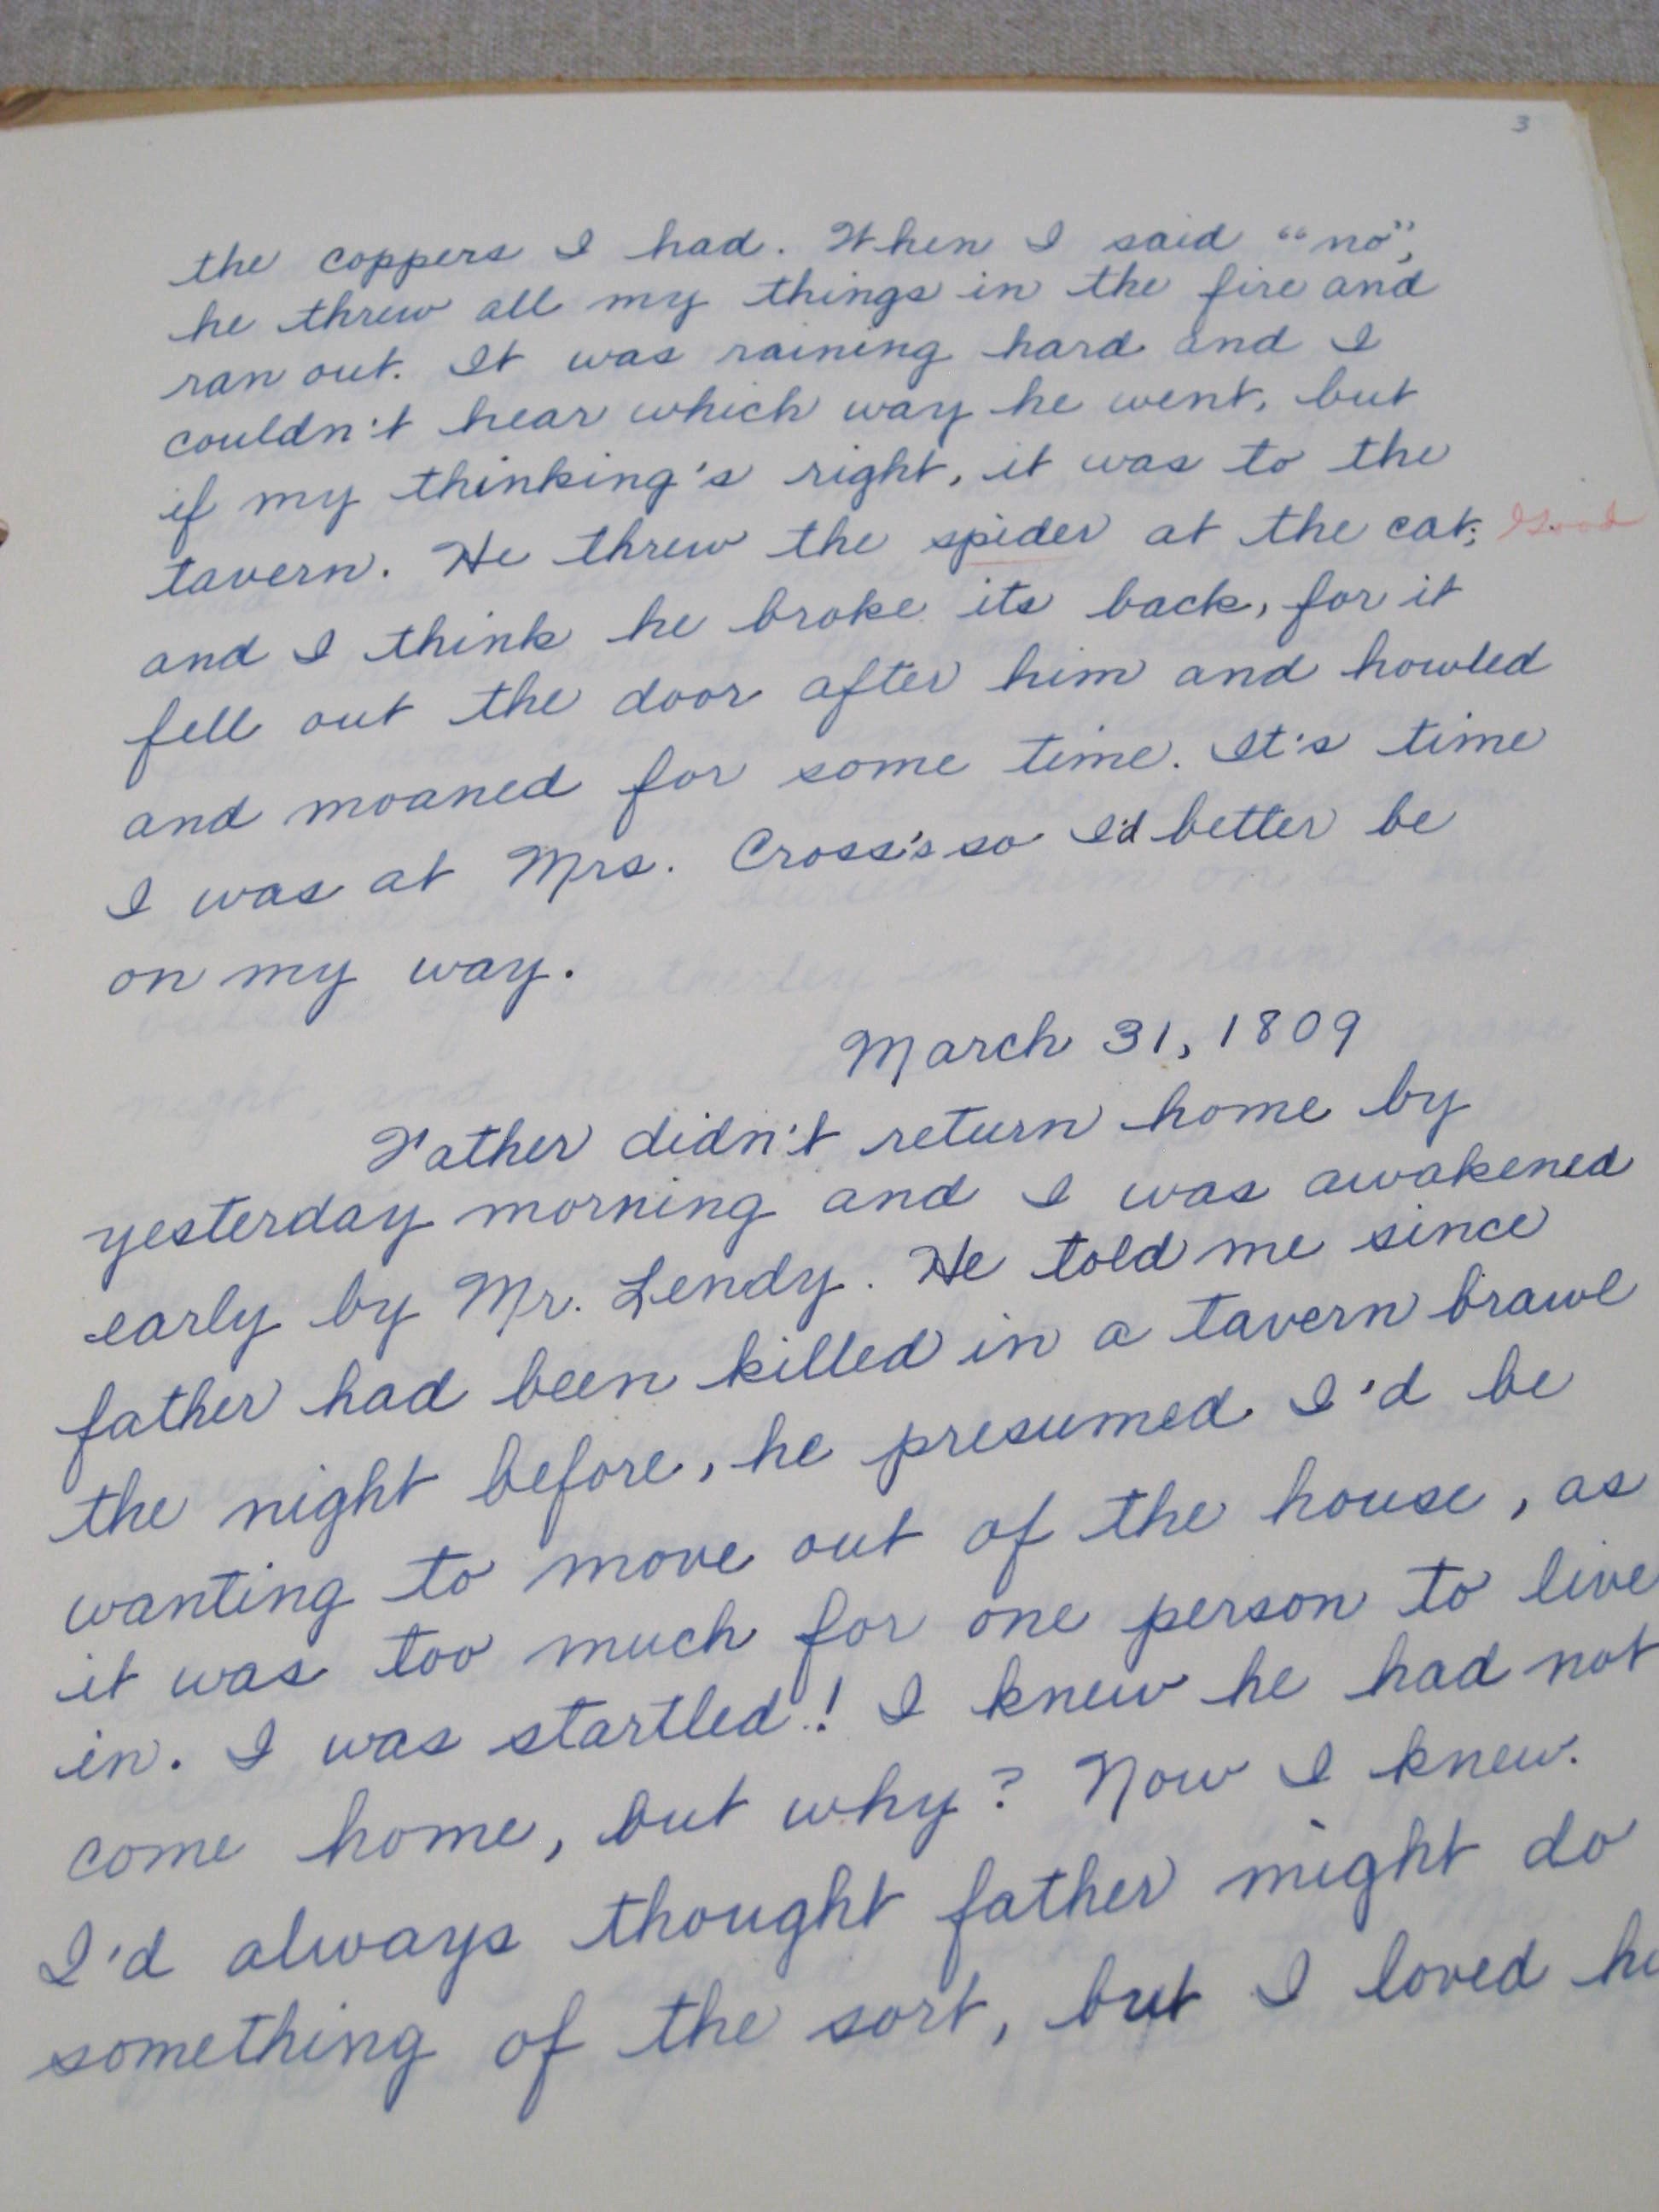 3
the coppers I had. When I said "no",
he threw all my things in the fire and
ran out. It was raining hard and I
couldn't hear which way he went, but
if my thinking's right, it was to the
tavern. He threw the spider at the cat; Good
and I think he broke its back, for it
fell out the door after him and howled
and moaned for some time. It's time
I was at Mrs. Cross's so I'd better be
on my way.
March 31, 1809
Father didn't return home by
yesterday morning and I was awakened
early by Mr. Lendy. He told me since
father had been killed in a tavern brawl
the night before, he presumed I'd be
wanting to move out of the house, as
it was too much for one person to live
in. I was startled! I knew he had not
come home, but why? Now I knew.
I'd always thought father might do
something of the sort, but I loved